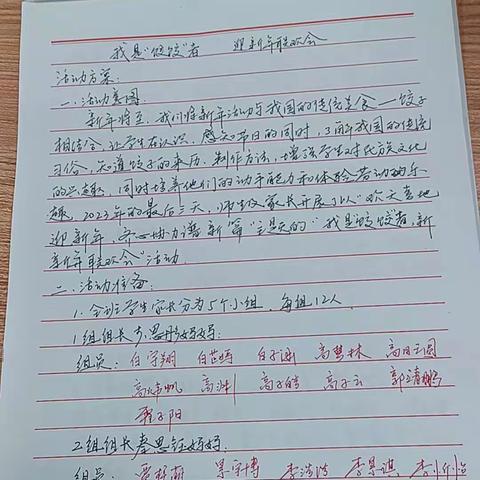 我是“饺饺”者 迎新年联欢会
活动方案:
一、活动意图
新年将至，我们将新年活动与我国的传统美食一饺子
相结合，让学生在认识、感知节日的同时，了解我国的传统
习俗，知道饺子的来历、制作方法，增强学生对民族文化
的兴趣，同时培养他们的动手能力和体验劳动的乐
趣，2023年的最后三天，师生及家长开展了以“欢天喜地
迎新年，齐心协力谱新篇”主题的“我是饺饺者，新
新年联欢会”活动
二、活动准备:
1. 全班学生家长分为5个小组，每组12人
1组组长李思彤妈妈:
组员: 白宇翔 白芷嫣 白子渊 高慧林 高田园
高炜帆 高洲 高子皓 高子云 郭靖鹏
程子阳
2组组长秦思钰妈妈:
组员: 贾舒萌 景宇博 李浩浩 李昊淇